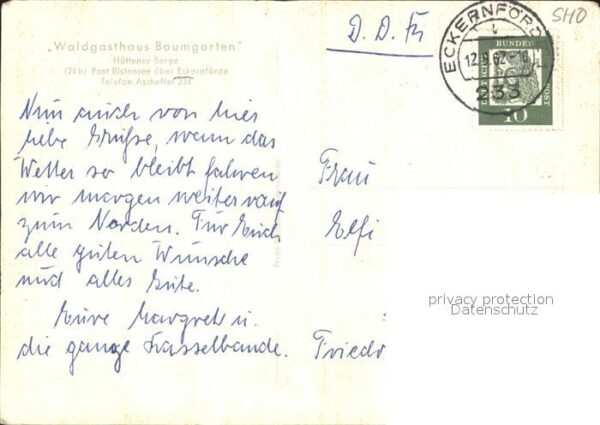 SHO
D. D. Fr
"Waldgasthaus Baumgarten"
Hüttener Berge
(24b) Post Bistensee über Eckernförde
Telefon Ascheffel 234
ECKERNFÖRDE
12.9.62
233
DEUTSCHE BUNDESPOST
10
Nun auch von hier
liebe Grüße, wenn das
Wetter so bleibt fahren
wir morgen weiter rauf
zum Norden. Für Euch
alle guten Wünsche
und alles Gute.
Eure Margret u.
die ganze Rasselbande.
Frau
Elfi
Friedr
privacy protection
Datenschutz